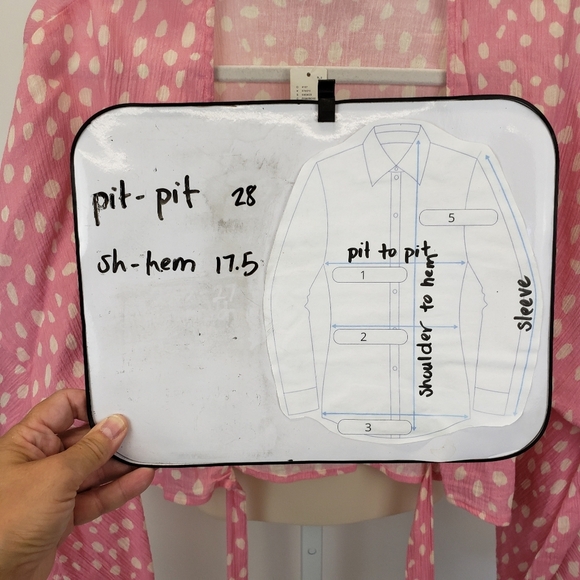 pit-pit 28
sh-hem 17.5
5
pit to pit
1
2
3
shoulder to hem
sleeve